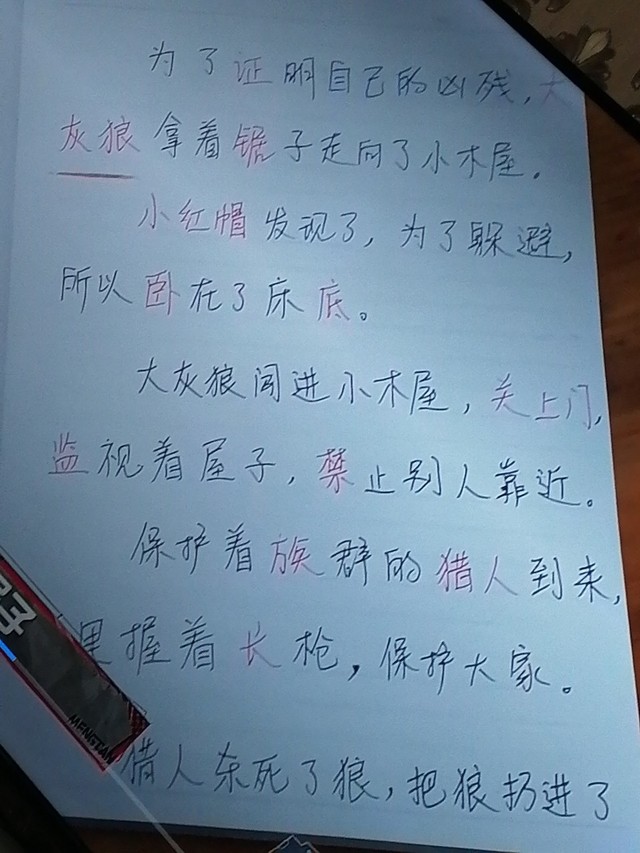 为了证明自己的凶残，大
灰狼拿着锯子走向了小木屋。
小红帽发现了，为了躲避，
所以卧在了床底。
大灰狼闯进小木屋，关上门，
监视着屋子，禁止别人靠近。
保护着族群的猎人到来，
里握着长枪，保护大家。
猎人杀死了狼，把狼扔进了
子
MENGTIAN